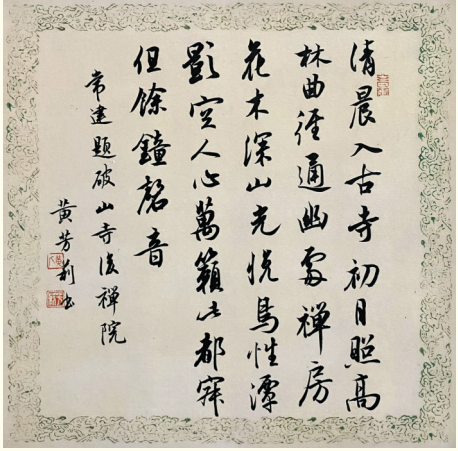 清晨入古寺初日照高
林曲徑通幽處禪房
花木深山光悅鳥性潭
影空人心萬籟此都寂
但餘鐘磬音
常建題破山寺後禪院
黃芳書